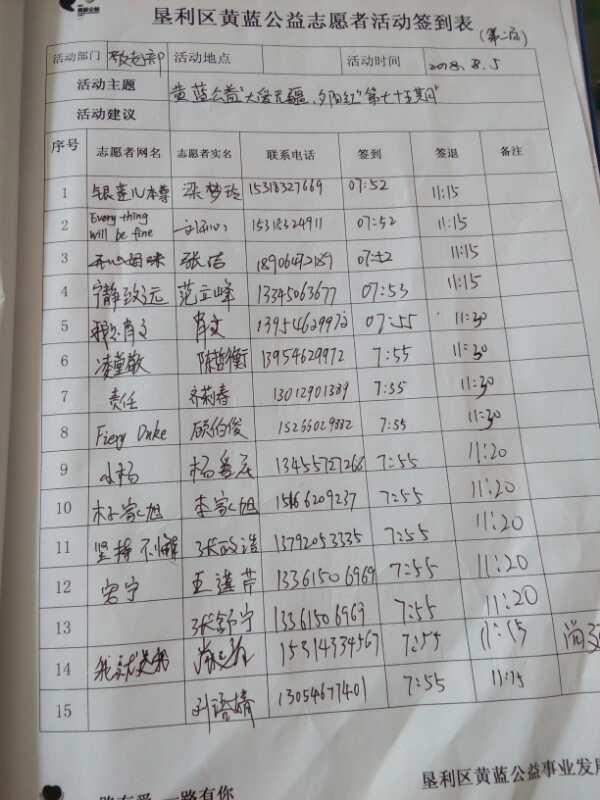 垦利区黄蓝公益志愿者活动签到表
(第二页)
活动部门 敬老部 活动地点 活动时间 2018.8.5
活动主题 黄蓝公益"大爱无疆,夕阳红"第七十五期
活动建议
序号 志愿者网名 志愿者实名 联系电话 签到 签退 备注
1 银莲儿本尊 梁梦玲 15318327669 07:52 11:15
2 Everything will be fine 15318324911 07:52 11:15
3 张洁 07:52 11:15
4 宁静致远 范立峰 13345063677 07:53 11:15
5 肖文 13954629972 07:55 11:30
6 凌堂敬 陈哲衡 13954629972 7:55 11:30
7 责任 齐莉春 13012901389 7:55 11:30
8 Fiery Duke 顾伯俊 15266029882 7:55 11:30
9 小杨 7:55 11:20
10 李家旭 7:55 11:20
11 坚持不懈 张政浩 13792053335 7:55 11:20
12 宕宁 王莲芹 13361506969 7:55 11:20
13 张舒宁 13361506969 7:55 11:20
14 我就是我 15314334567 7:55 11:15
15 刘语婧 13054677401 7:55 11:15
垦利区黄蓝公益事业发
一路有你